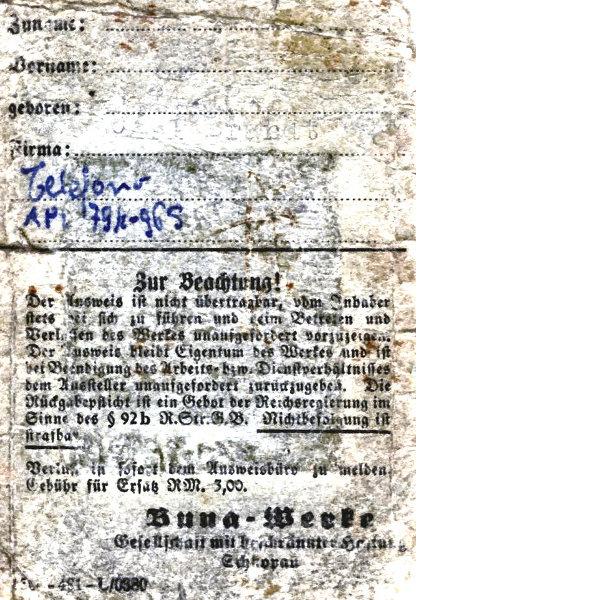 Zuname:
Vorname:
geboren:
Firma:
Telefono
API 794-965
Zur Beachtung!
Der Ausweis ist nicht übertragbar, vom Inhaber
stets bei sich zu führen und beim Betreten und
Verlassen des Werkes unaufgefordert vorzuzeigen.
Der Ausweis bleibt Eigentum des Werkes und ist
bei Beendigung des Arbeits- bzw. Dienstverhältnisses
dem Aussteller unaufgefordert zurückzugeben. Die
Rückgabepflicht ist ein Gebot der Reichsregierung im
Sinne des § 92 b R.Str.G.B. Nichtbefolgung ist
strafbar
Verlust ist sofort dem Ausweisbüro zu melden
Gebühr für Ersatz RM. 3,00.
Buna-Werke
Gesellschaft mit beschränkter Haftung
Schkopau